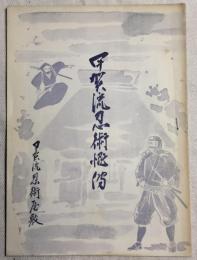 甲賀流忍術秘傳
甲賀流忍術屋敷